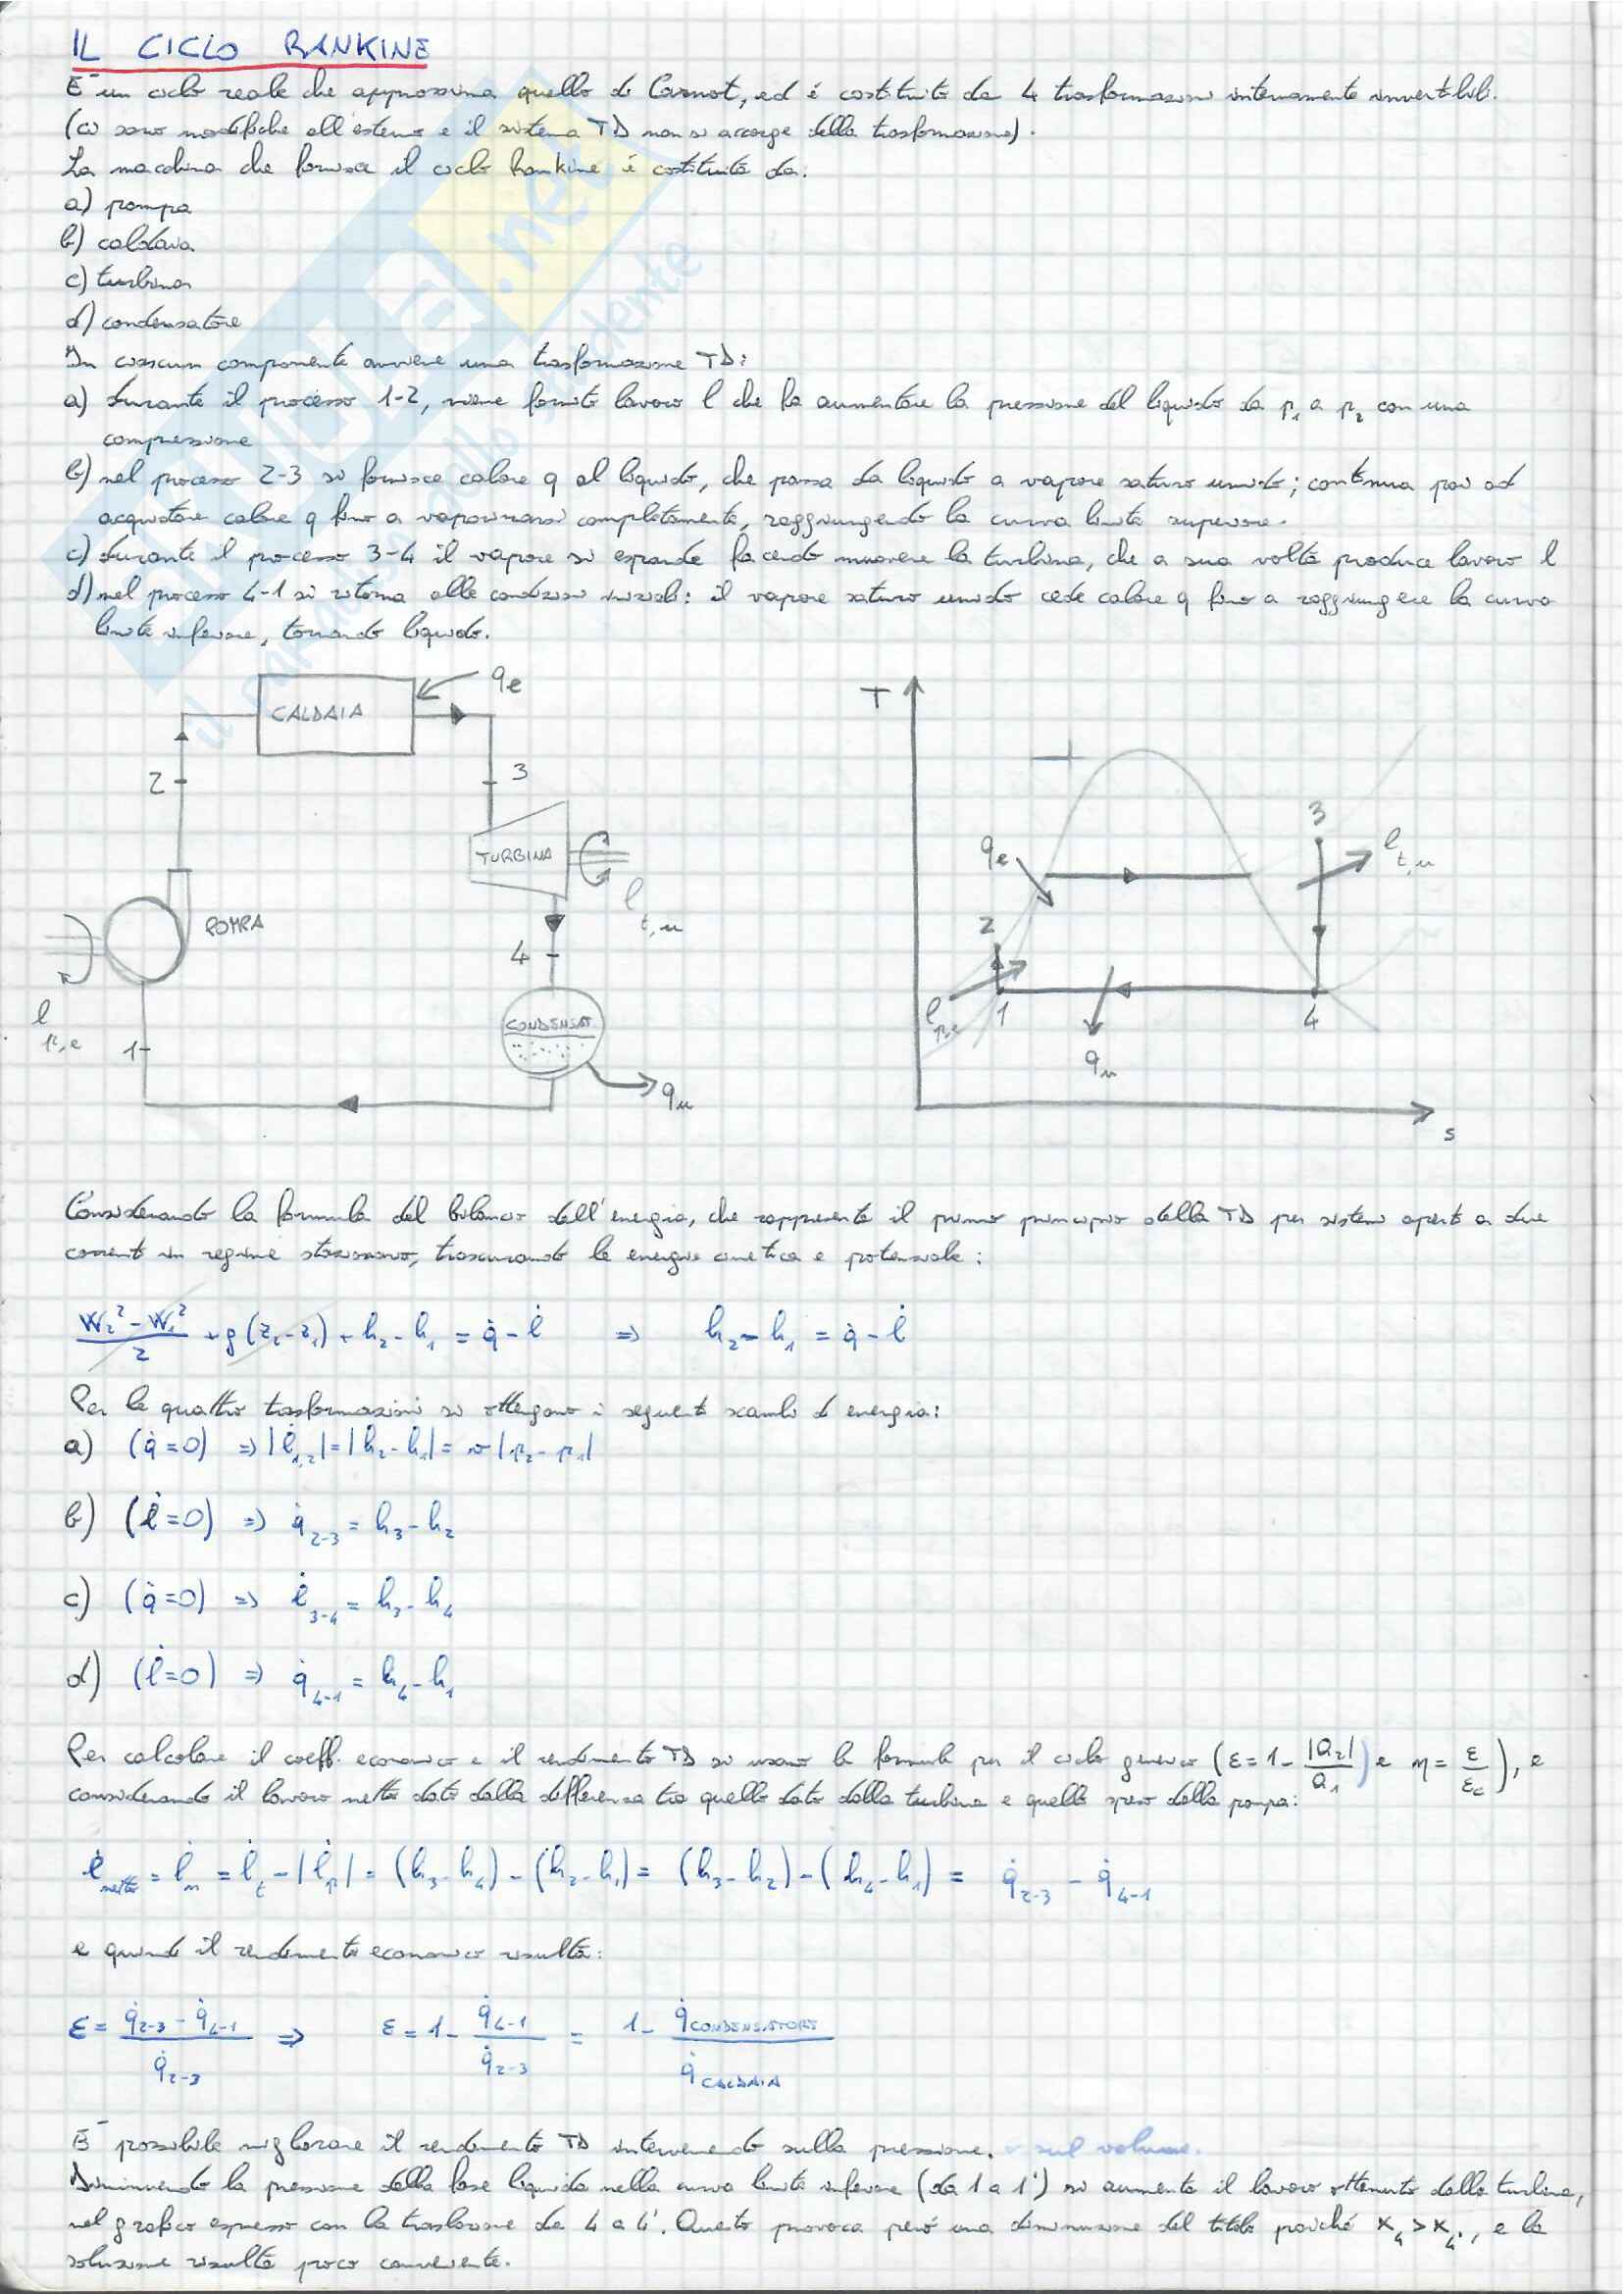 IL CICLO RANKINE
È un ciclo reale che approssima quello di Carnot, ed è costituito da 4 trasformazioni internamente invertibili.
(ci sono modifiche all'esterno e il sistema TD non si accorge della trasformazione).
La macchina che fornisce il ciclo Rankine è costituita da:
a) pompa
b) caldaia
c) turbina
d) condensatore
In ciascun componente avviene una trasformazione TD:
a) durante il processo 1-2, viene fornito lavoro l che fa aumentare la pressione del liquido da p₁ a p₂ con una
compressione
b) nel processo 2-3 si fornisce calore q al liquido, che passa da liquido a vapore saturo umido; continua poi ad
acquistare calore q fino a vaporizzarsi completamente, raggiungendo la curva limite superiore.
c) durante il processo 3-4 il vapore si espande facendo muovere la turbina, che a sua volta produce lavoro l
d) nel processo 4-1 si ritorna alle condizioni iniziali: il vapore saturo umido cede calore q fino a raggiungere la curva
limite inferiore, tornando liquido.
CALDAIA qe
2
3
TURBINA
l t,u
POMPA
4
l p,e
CONDENSAT.
1
qu
T
3
qe
l t,u
2
l p,e
1
4
qu
s
Considerando la formula del bilancio dell'energia, che rappresenta il primo principio della TD per sistemi aperti a due
correnti in regime stazionario, trascurando le energie cinetica e potenziale:
(w₂² - w₁²)/2 + g(z₂-z₁) + h₂-h₁ = q̇ - l̇ ⇒ h₂-h₁ = q̇ - l̇
Per le quattro trasformazioni si ottengono i seguenti scambi di energia:
a) (q̇=0) ⇒ |l̇₁,₂| = |h₂-h₁| = v|p₂-p₁|
b) (l̇=0) ⇒ q̇₂₋₃ = h₃-h₂
c) (q̇=0) ⇒ l̇₃₋₄ = h₃-h₄
d) (l̇=0) ⇒ q̇₄₋₁ = h₄-h₁
Per calcolare il coeff. economico e il rendimento TD si usano le formule per il ciclo generico (ε=1-|Q₂|/Q₁) e η=ε/εc), e
considerando il lavoro netto dato dalla differenza tra quello dato dalla turbina e quello speso dalla pompa:
l̇netto = l̇n = l̇t - |l̇p| = (h₃-h₄) - (h₂-h₁) = (h₃-h₂) - (h₄-h₁) = q̇₂₋₃ - q̇₄₋₁
e quindi il rendimento economico risulta:
ε = (q̇₂₋₃ - q̇₄₋₁)/q̇₂₋₃ ⇒ ε = 1 - q̇₄₋₁/q̇₂₋₃ = 1 - q̇CONDENSATORE/q̇CALDAIA
È possibile migliorare il rendimento TD intervenendo sulla pressione. o sul volume.
Diminuendo la pressione della fase liquida nella curva limite inferiore (da 1 a 1') si aumenta il lavoro ottenuto dalla turbina,
nel grafico espresso con la traslazione da 4 a 4'. Questo provoca però una diminuzione del titolo poiché x₄ > x₄', e la
soluzione risulta poco conveniente.